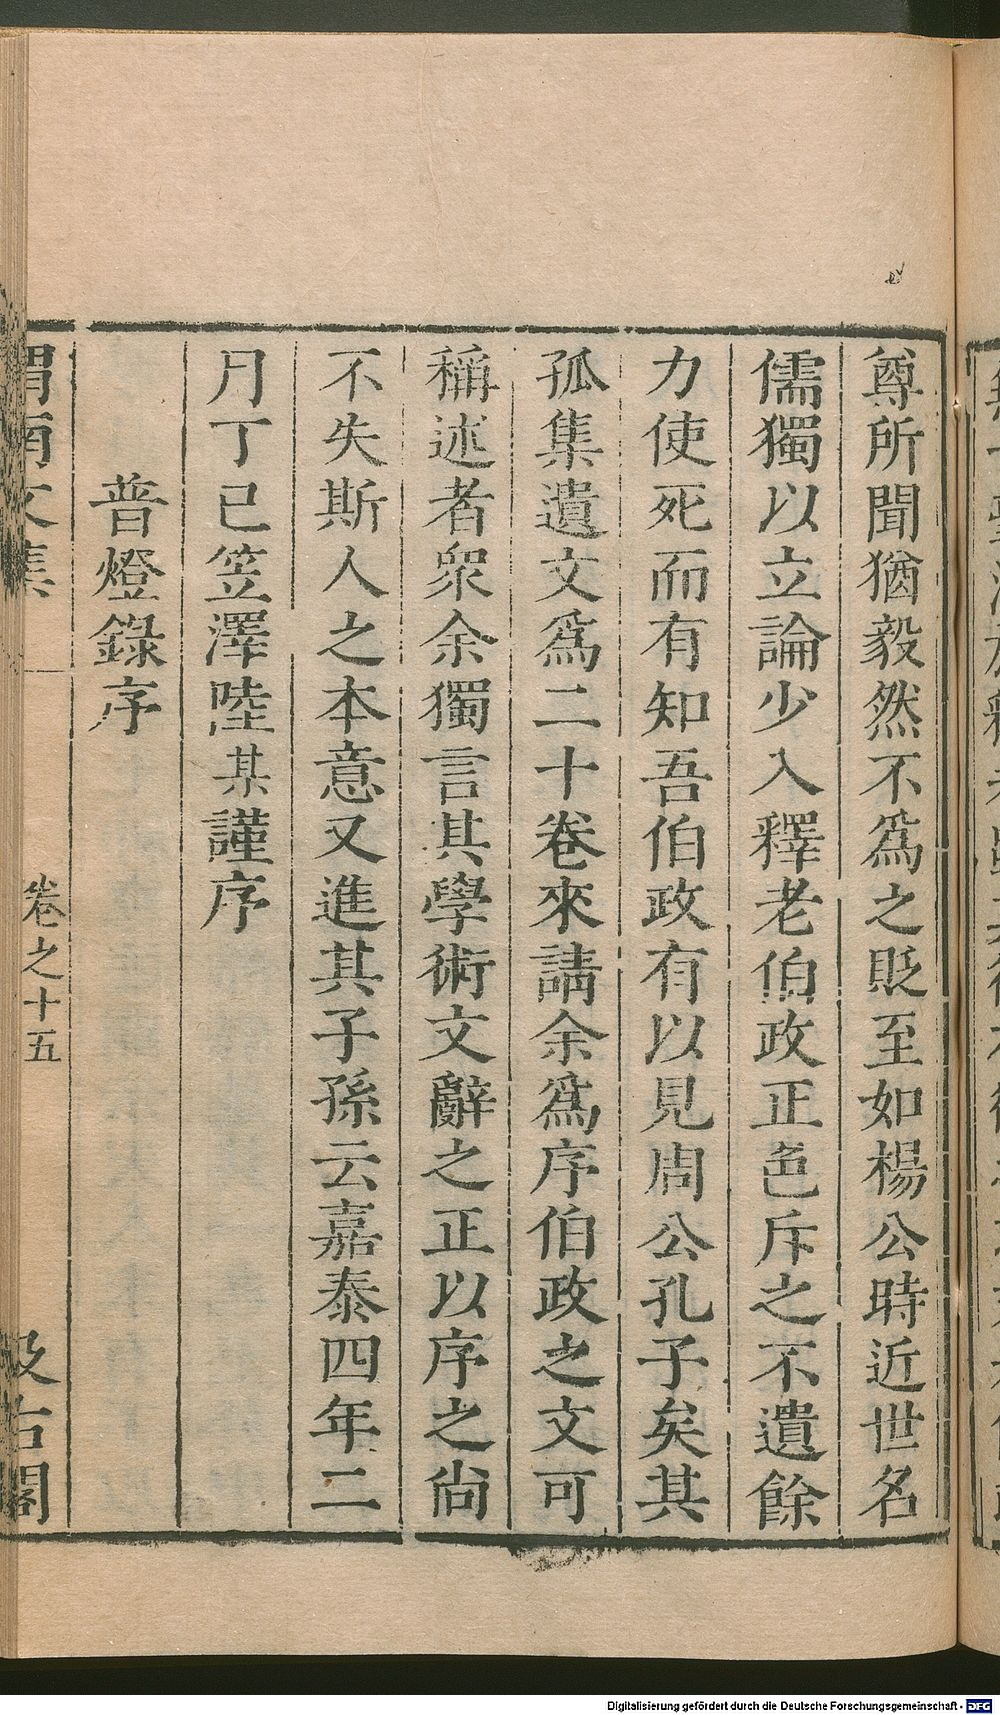 尊所聞猶毅然不爲之貶至如楊公時近世名
儒獨以立論少入釋老伯政正色斥之不遺餘
力使死而有知吾伯政有以見周公孔子矣其
孤集遺文爲二十卷來請余爲序伯政之文可
稱述者衆余獨言其學術文辭之正以序之尙
不失斯人之本意又進其子孫云嘉泰四年二
月丁已笠澤陸某謹序
普燈錄序
渭南文集 卷之十五 汲古閣
Digitalisierung gefördert durch die Deutsche Forschungsgemeinschaft - DFG